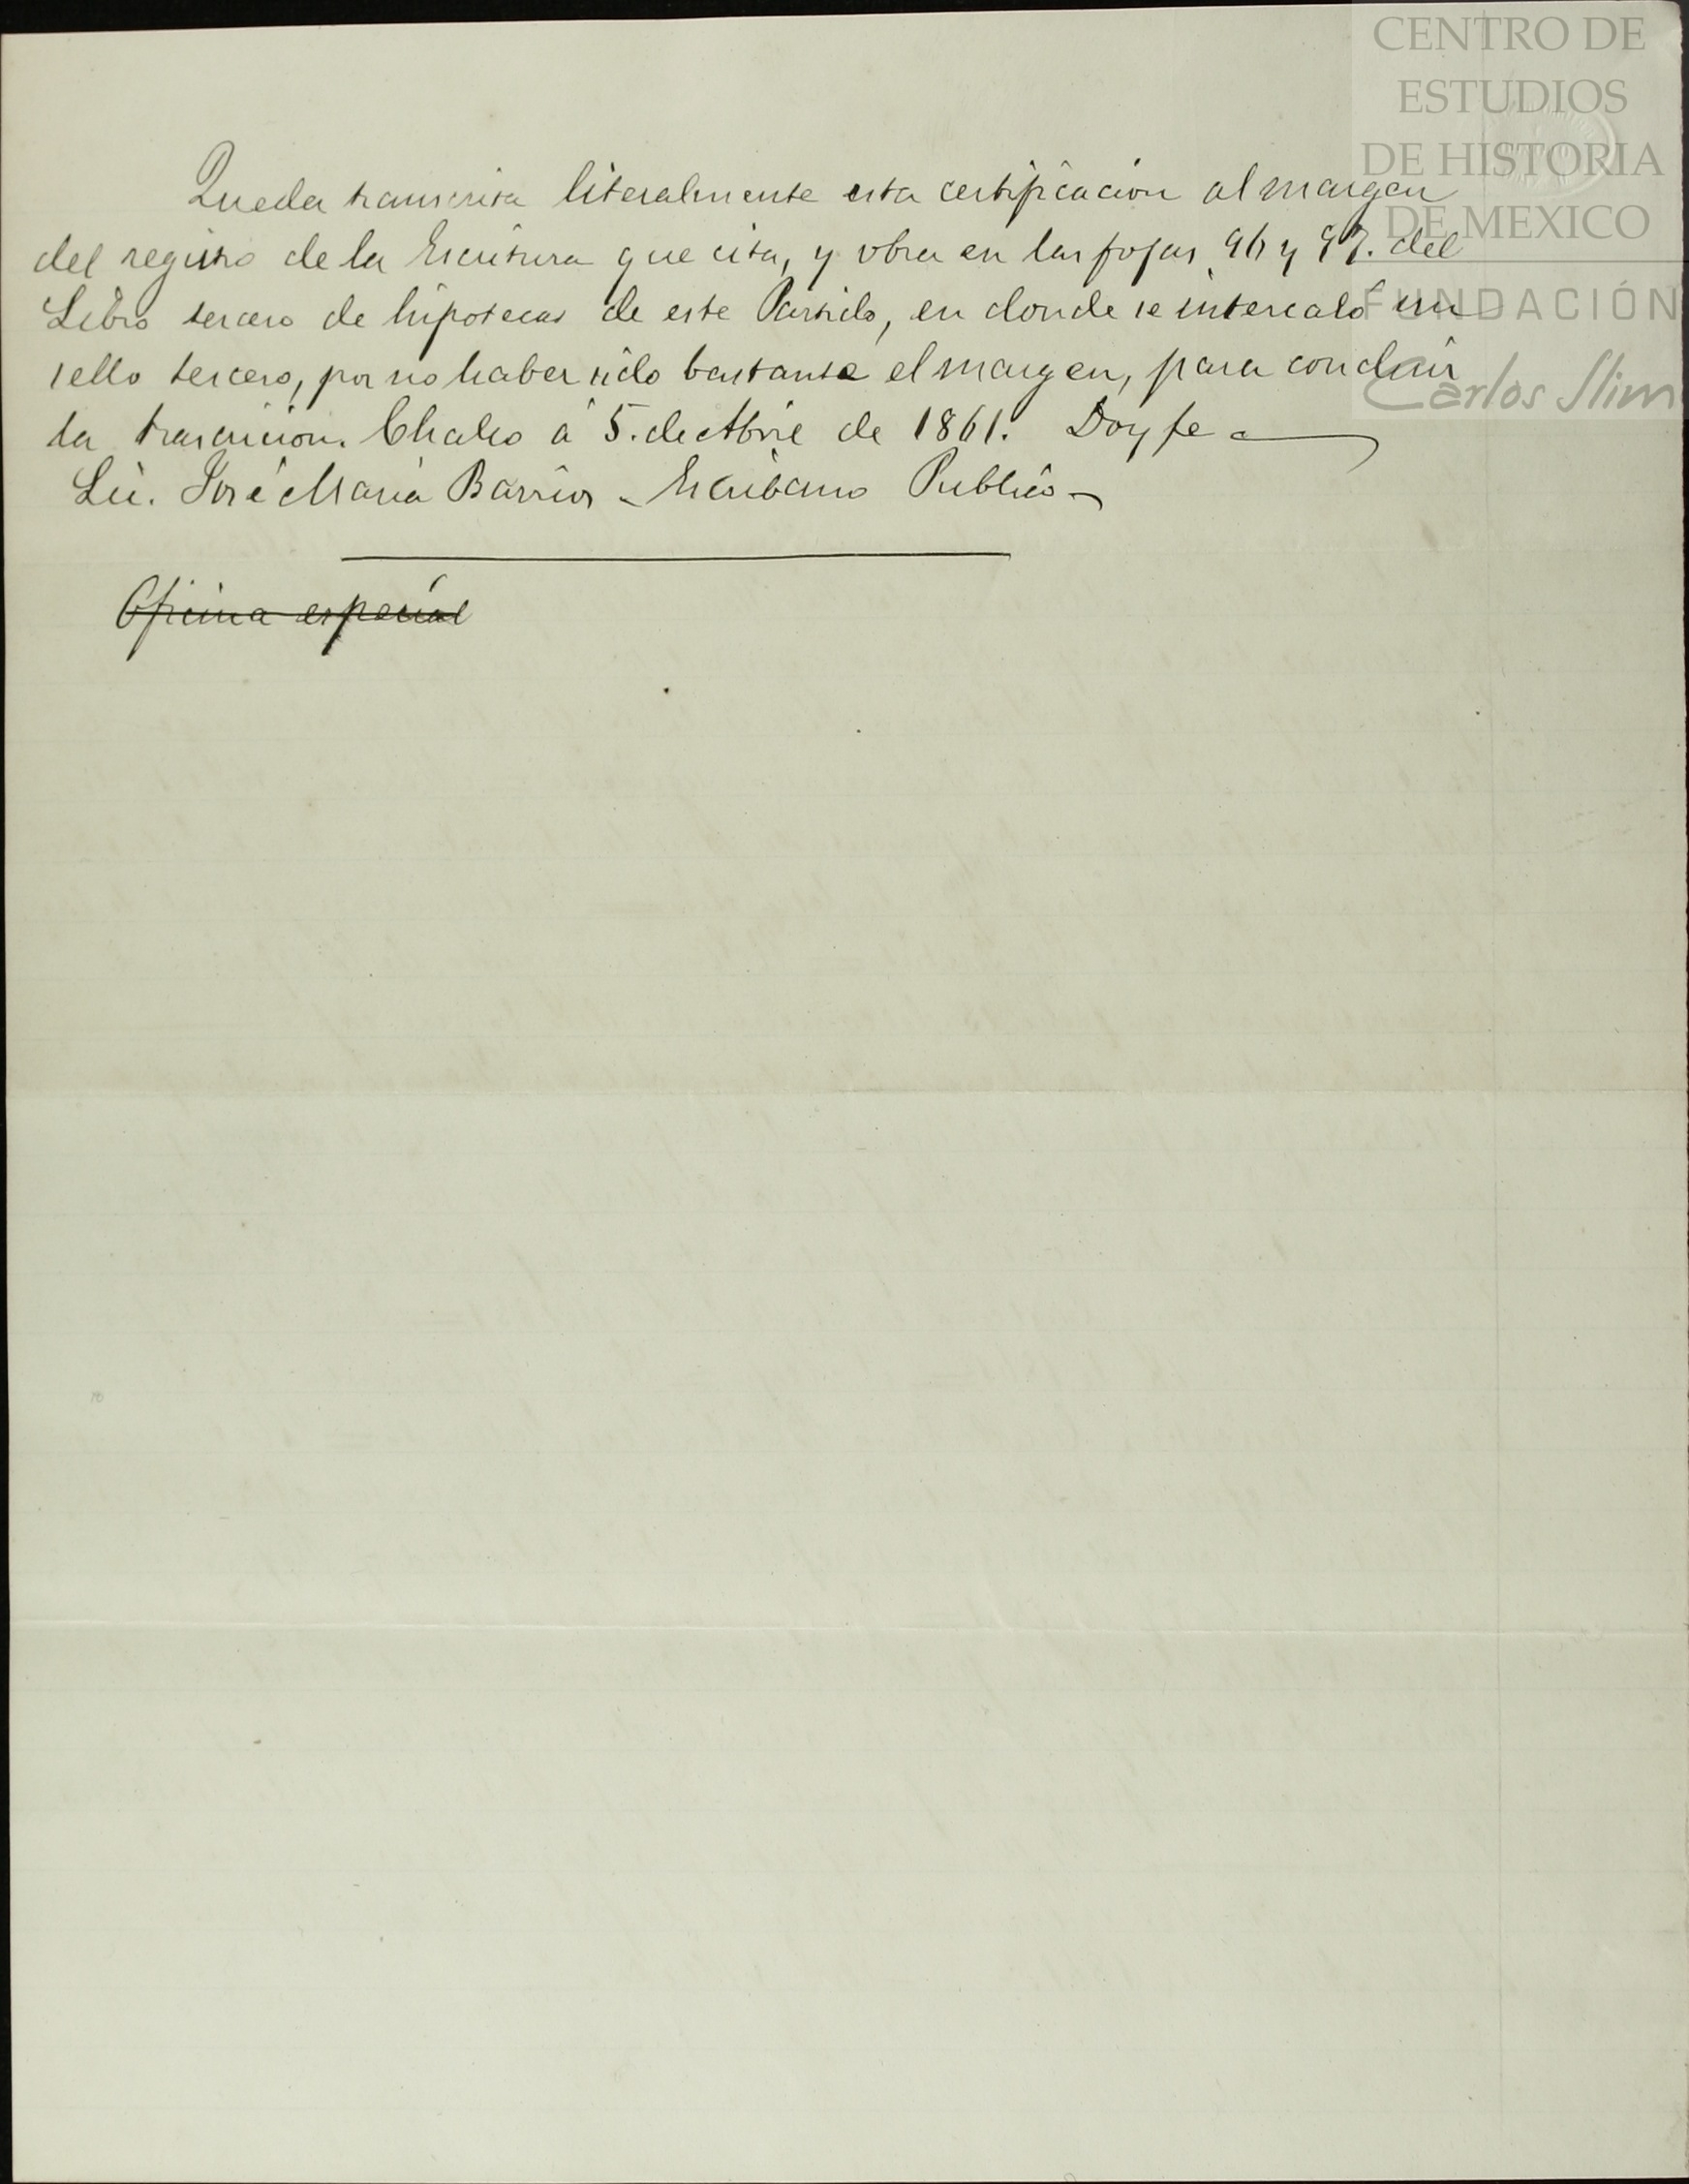 CENTRO DE
ESTUDIOS
DE HISTORIA
DE MEXICO
FUNDACIÓN
Carlos Slim
Queda transcrita literalmente esta certificacion al margen
del registro de la Escritura que cita, y obra en las fojas 96 y 97. del
Libro tercero de hipotecas de este Partido, en donde se intercaló un
sello tercero, por no haber sido bastante el margen, para concluir
la trascricion. Chalco á 5. de Abril de 1861. Doy fe
Lic. José Maria Barrios - Escribano Publico -
Oficina especial